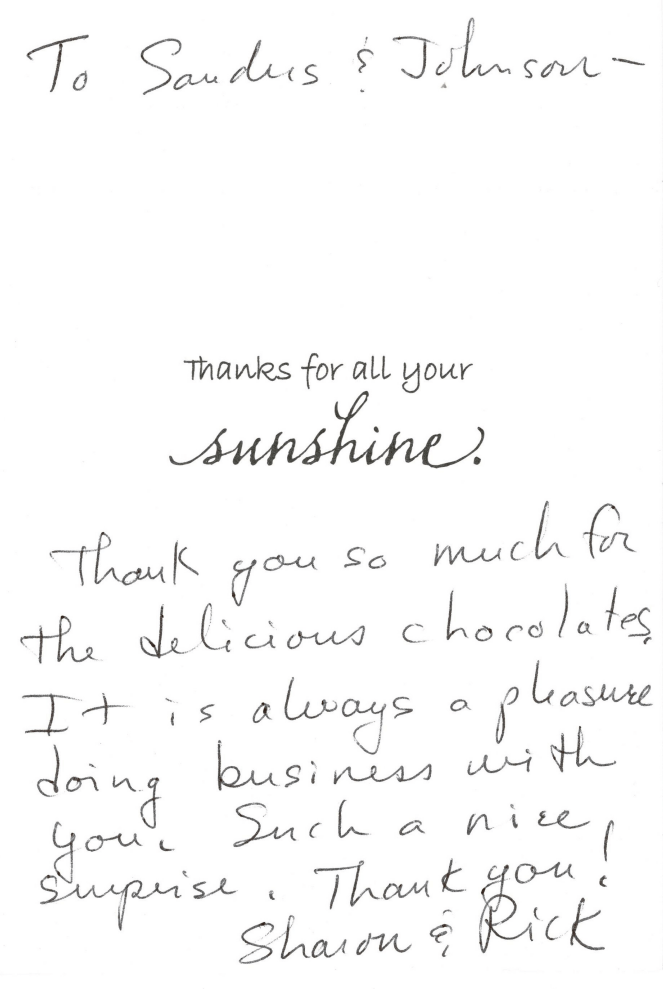 To Sanders & Johnson—
Thanks for all your
sunshine.
Thank you so much for
the delicious chocolates.
It is always a pleasure
doing business with
you. Such a nice
surprise. Thank you!
Sharon & Rick